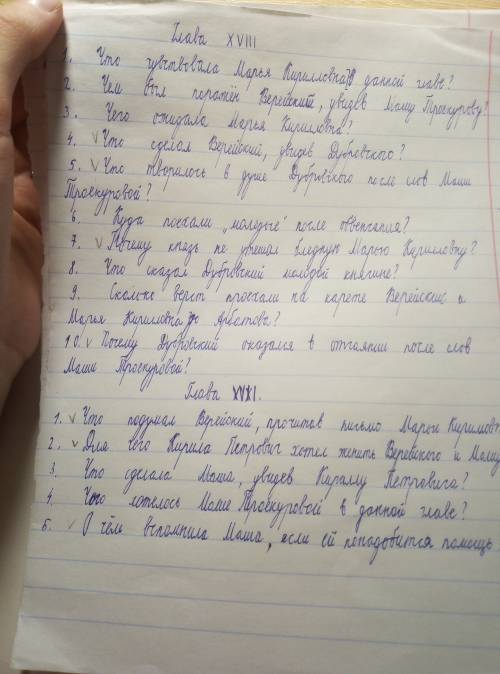 Глава XVIII
1. Что чувствовала Марья Кирилловна в данной главе?
2. Чем был поражён Верейский, увидев Машу Троекурову?
3. Чего ожидала Марья Кирилловна?
4. ✓ Что сделал Верейский, увидев Дубровского?
5. ✓ Что творилось в душе Дубровского после слов Маши
Троекуровой?
6. Куда поехали „молодые" после обвенчания?
7. ✓ Почему князь не утешал бледную Марью Кирилловну?
8. Что сказал Дубровский молодой княгине?
9. Сколько верст проехали на карете Верейский и
Марья Кирилловна до Арбатова?
10. ✓ Почему Дубровский оказался в отчаянии после слов
Маши Троекуровой?
Глава XVI.
1. ✓ Что подумал Верейский, прочитав письмо Марьи Кириловн
2. ✓ Для чего Кирила Петрович хотел женить Верейского и Машу
3. Что сделала Маша, увидев Кириллу Петровича?
4. Чего хотелось Маше Троекуровой в данной главе?
5. ✓ О чём вспомнила Маша, если ей понадобится помощь